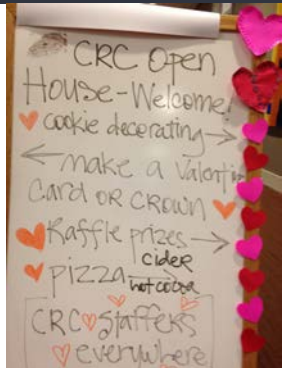 CRC Open
House-Welcome!
cookie decorating
make a Valentine
Card OR CROWN
Raffle prizes
cider
pizza
hot cocoa
CRC staffers
everywhere